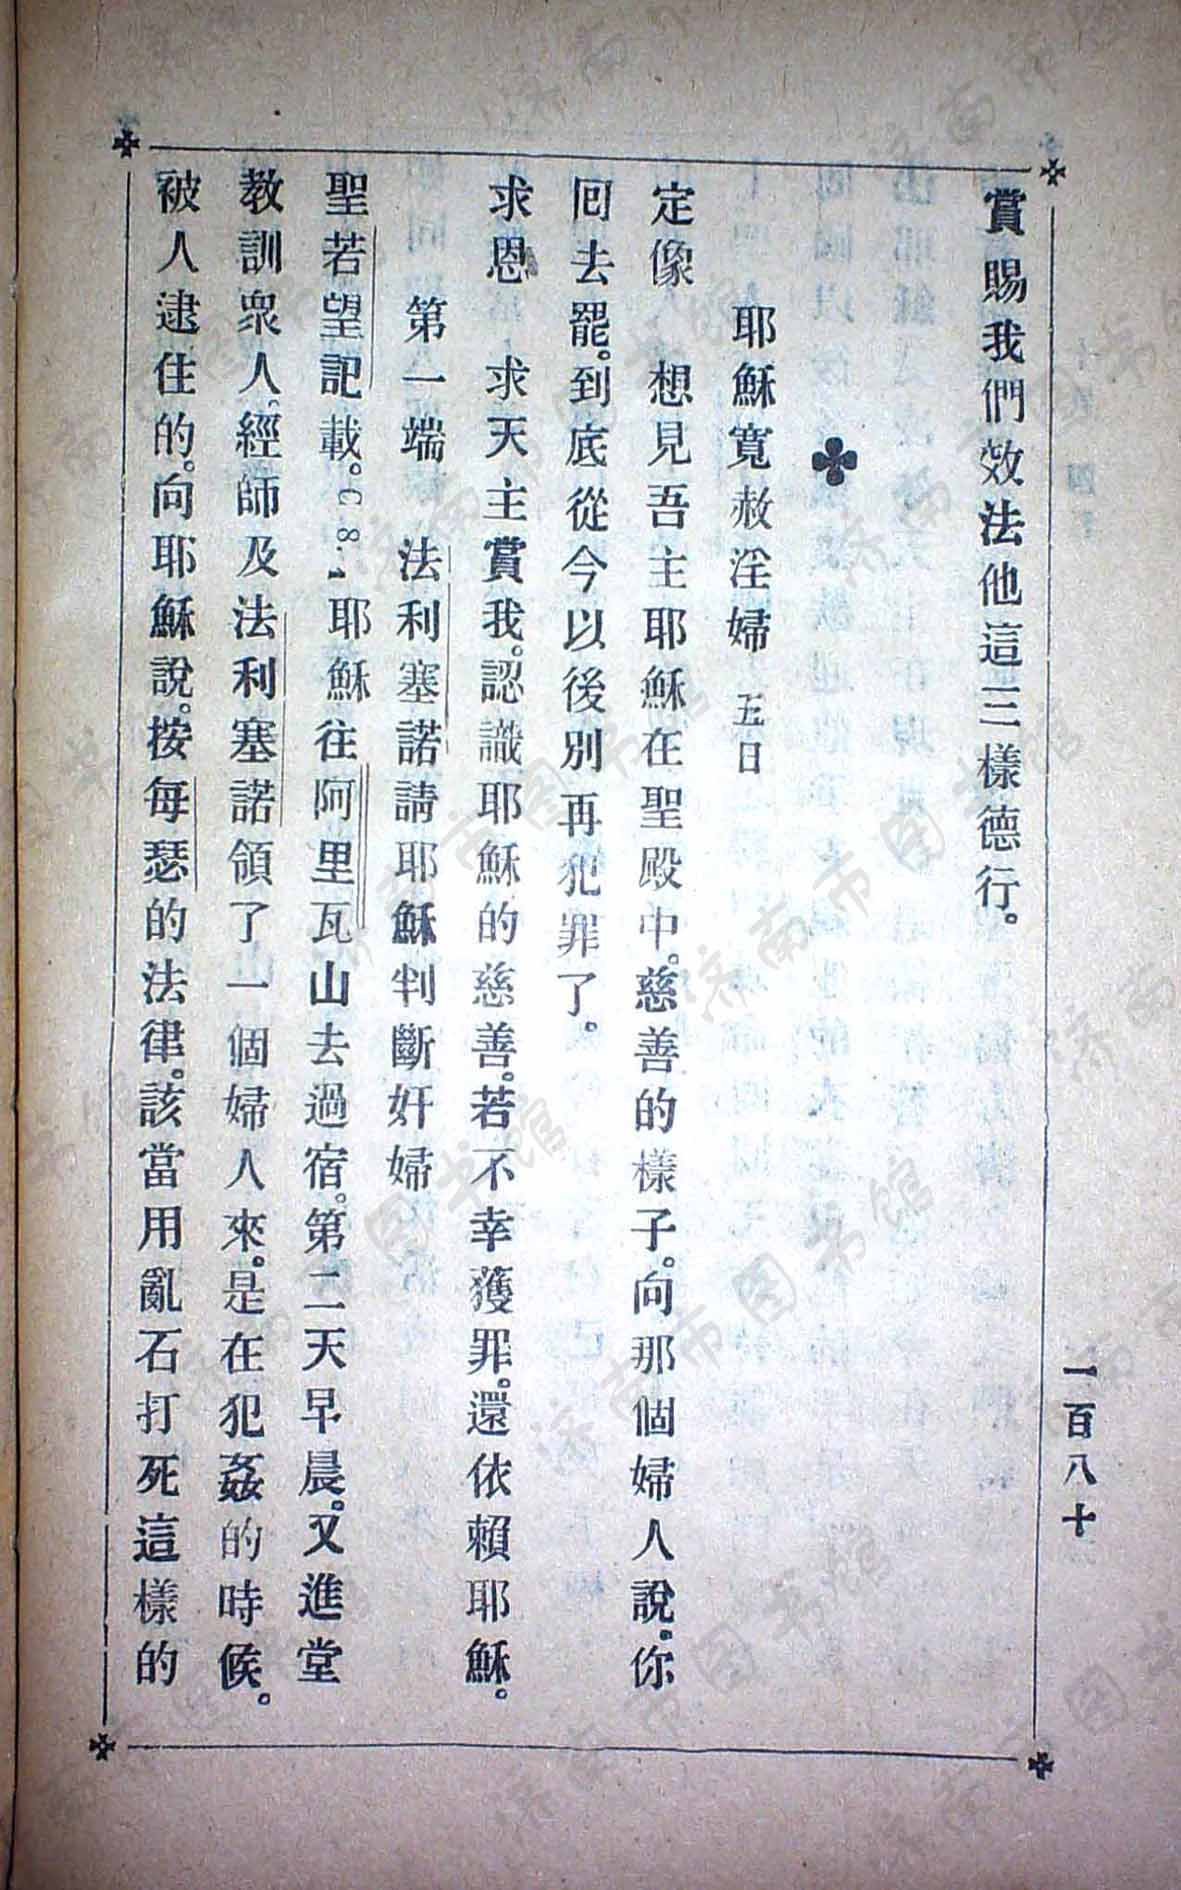 一百八十
賞賜我們效法他這三樣德行。
耶穌寬赦淫婦 五日
定像 想見吾主耶穌在聖殿中。慈善的樣子。向那個婦人說。你
回去罷。到底從今以後別再犯罪了。
求恩 求天主賞我。認識耶穌的慈善。若不幸獲罪。還依賴耶穌。
第一端 法利塞諾請耶穌判斷奸婦
聖若望記載。C 8. 1 耶穌往阿里瓦山去過宿。第二天早晨。又進堂
教訓衆人。經師及法利塞諾領了一個婦人來。是在犯姦的時候。
被人逮住的。向耶穌說。按每瑟的法律。該當用亂石打死這樣的
济南市图书馆